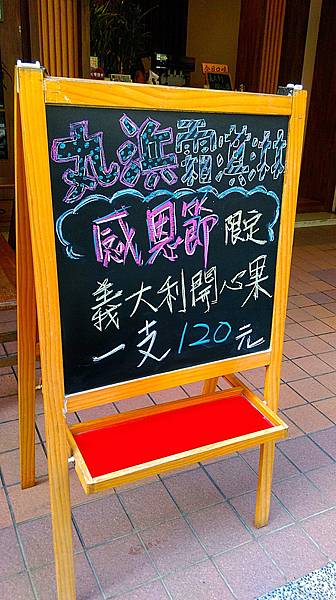 丸浜霜淇淋
感恩節限定
義大利開心果
一支120元